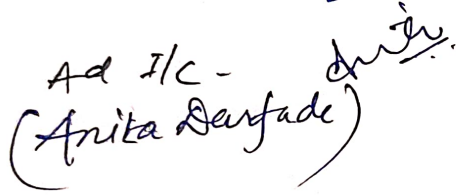 Ad I/C -
(Anita Darfade)